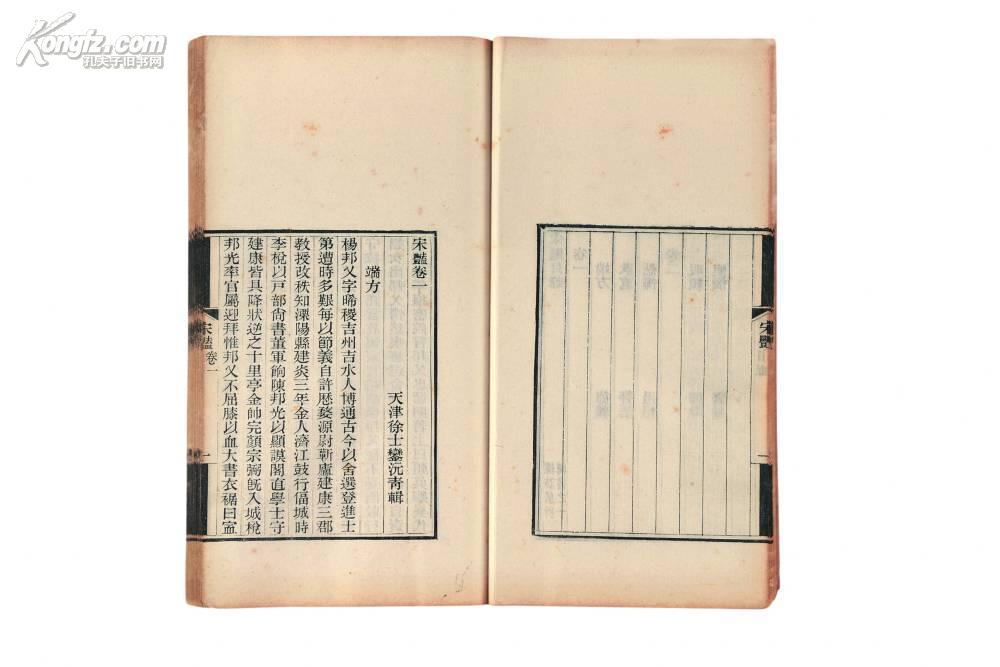 Kongfz.com
孔夫子旧书网
宋豔
一
宋豔卷一
天津徐士鑾沅青輯
端方
楊邦乂字晞稷吉州吉水人博通古今以舍選登進士
第遭時多艱每以節義自許歷婺源尉蘄廬建康三郡
教授改秩知溧陽縣建炎三年金人濟江鼓行偪城時
李梲以戶部尚書董軍餉陳邦光以顯謨閣直學士守
建康皆具降狀逆之十里亭金帥完顏宗弼旣入城梲
邦光率官屬迎拜惟邦乂不屈膝以血大書衣裾曰寍
宋豔卷一
一